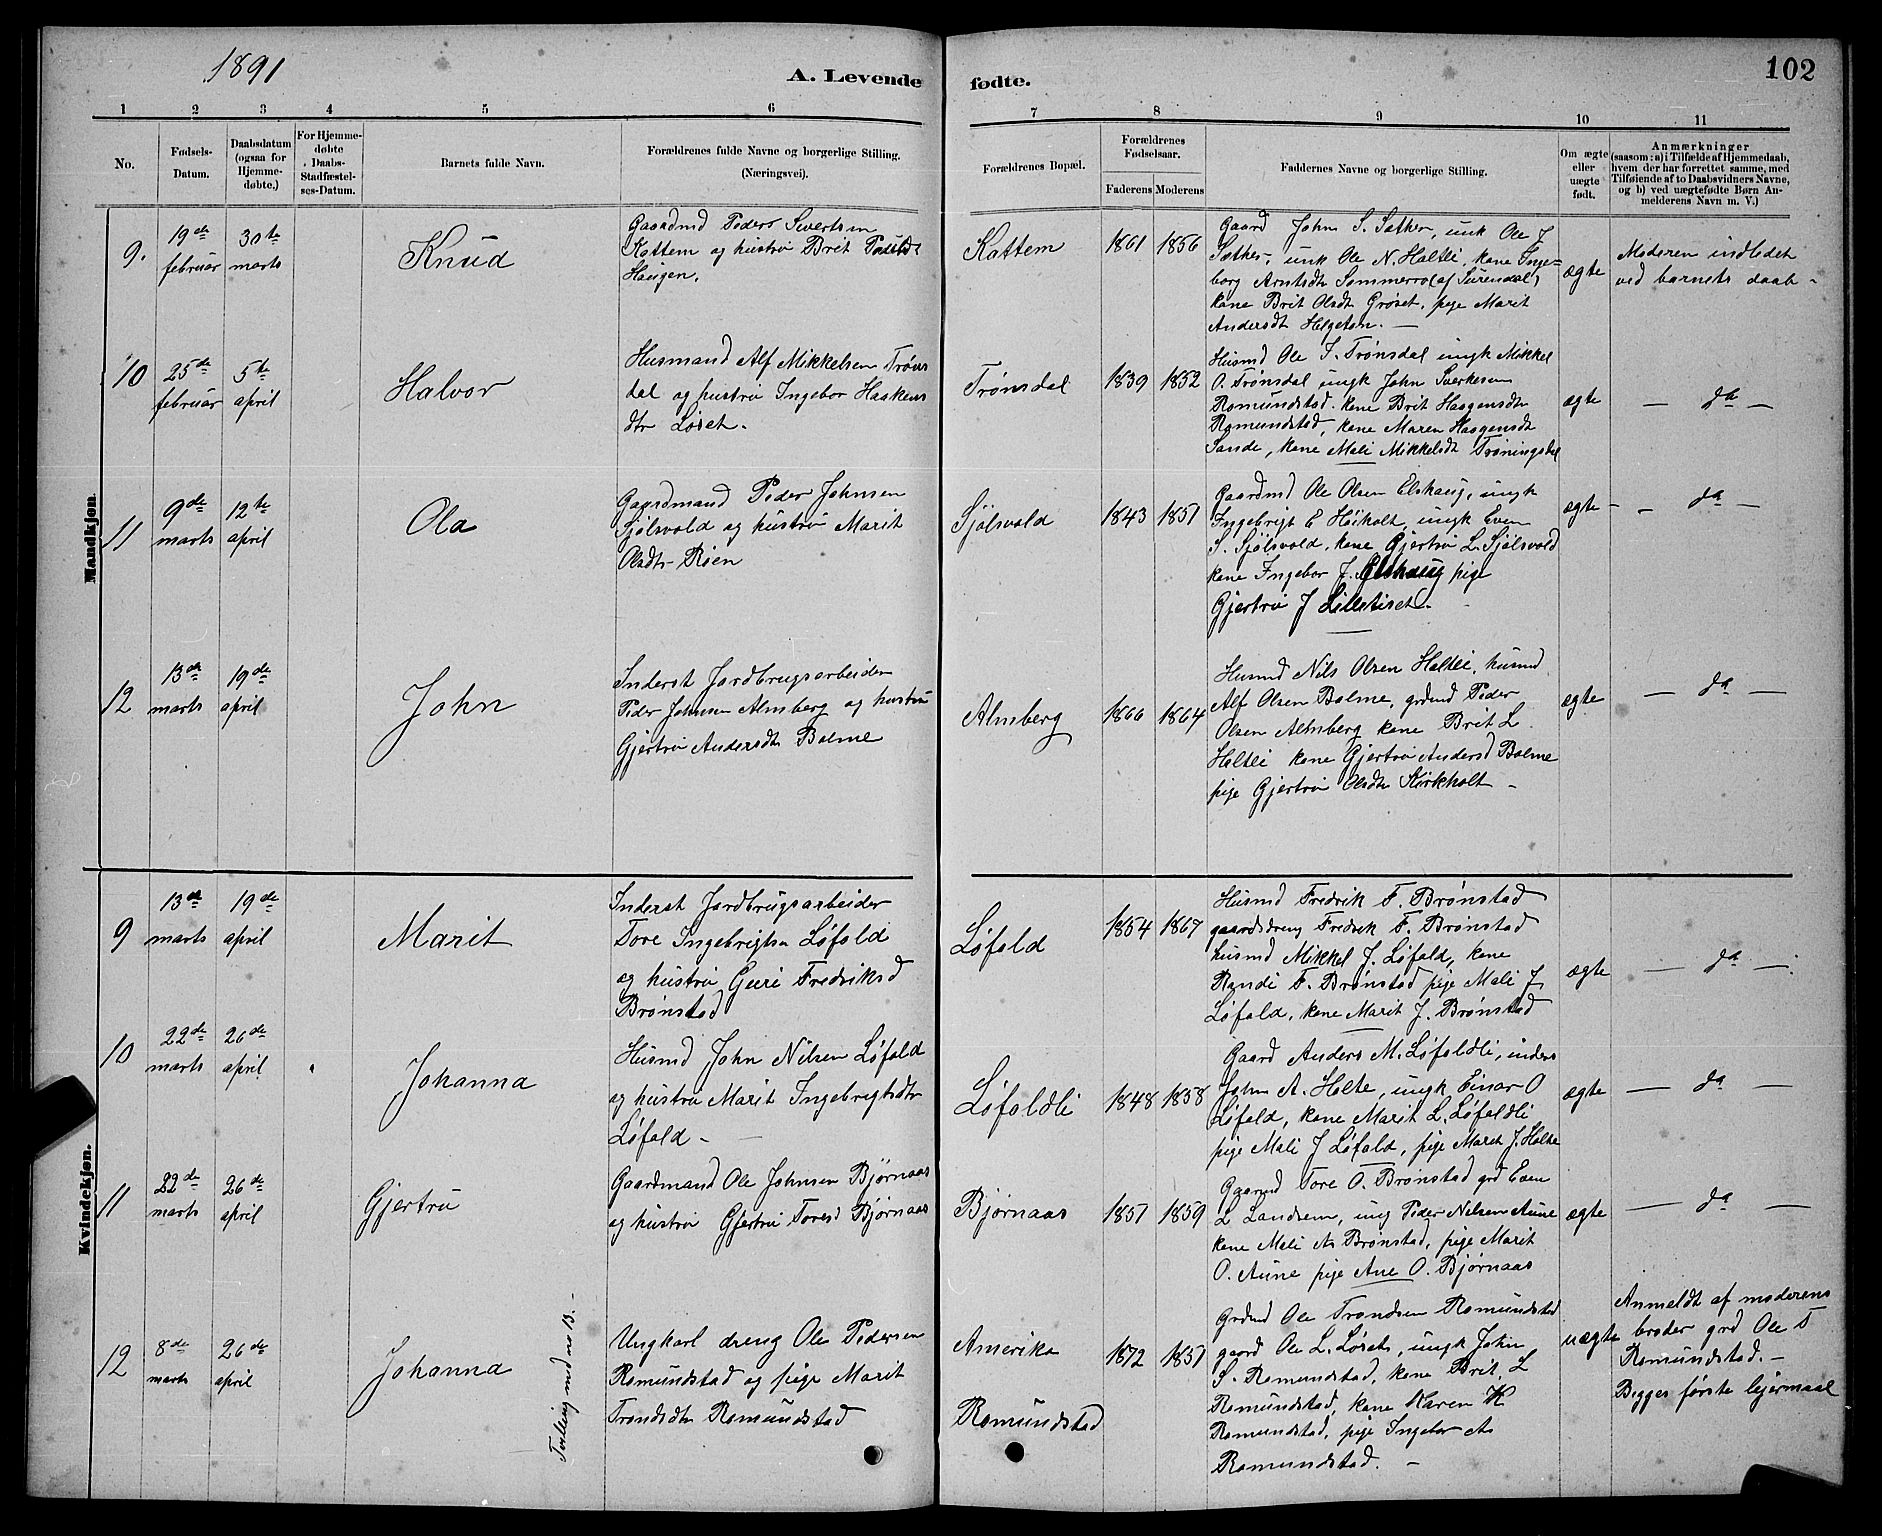 1891
A. Levende fødte.
102
1 2 3 4 5 6 7 8 9 10 11
No.
Fødsels-
Datum.
Daabsdatum
(ogsaa for
Hjemme-
døbte.)
For Hjemme-
døbte
Daabs-
Stadfæstel-
ses-Datum.
Barnets fulde Navn.
Forældrenes fulde Navne og borgerlige Stilling.
(Næringsvei).
Forældrenes Bopæl.
Forældrenes
Fødselsaar.
Faderens Moderens
Faddernes Navne og borgerlige Stilling.
Om ægte
eller
uægte
født.
Anmærkninger
(saasom: a) i Tilfælde af Hjemmedaab,
hvem der har forrettet samme, med
Tilføiende af to Daabsvidners Navne,
og b) ved uægtefødte Børn An-
melderens Navn m. V.)
Mandkjøn.
9.
19de
februar
30te
marts
Knud
Gaardmd Peder Sivertsen
Kattem og hustru Brit
Haugen.
Kattem
1861 1856
Gaard John S. Sæther, unk Ole J
Sæther, unk Ole N. Holtli, kone Inge-
borg Arntsdtr Sommerro (af Surendal)
kone Brit Olsdt Grøset, pige Marit
Andersdt Helgetun. —
ægte
Moderen indledet
ved barnets daab -
10
25de
februar
5te
april
Halvor
Husmand Alf Mikkelsen Trøns
dal og hustru Ingebor Haakens
dtr Løset.
Trønsdal
1839 1852
Husmd Ole I. Trønsdal ungk Mikkel
O. Trønsdal ungk John Sverkesen
Romundstad. kone Brit Haagensdtr
Romundstad, kone Maren Haagensdt
Sande, kone Mali Mikkelsdt Trøningsdal
ægte
— da —
11
9de
marts
12te
april
Ola
Gaardmand Peder Johnsen
Sjølsvold og hustru Marit
Olsdtr Røen
Sjølsvold
1843 1851
Gaardmd Ole Olsen Elshaug, ungk
Ingebrigt E Høiholt, ungk Even
S. Sjølsvold, kone Gjertru L. Sjølsvold
kone Ingebor J. Elshaug pige
Gjertru J
ægte
— da —
12
13de
marts
19de
april
John
Inderst Jordbrugsarbeider
Peder Johnsen Almberg og hustru
Gjertru Andersdtr Bolme
Almberg
1866 1864
Husmd Nils Olsen Holtli, husmd
Alf Olsen Bolme, grdmd Peder
Olsen Almberg kone Brit L.
Holtli kone Gjertru Andersd Bolme
pige Gjertru Olsdtr Kirkholt -
ægte
— da —
Kvindekjøn.
9
13de
marts
19de
april
Marit
Inderst Jordbrugsarbeider
Tore Ingebrigtsn Løfald
og hustru Guri Fredriksd
Brønstad
Løfald
1854 1867
Husmd Fredrik F. Brønstad
gaardsdreng Fredrik F. Brønstad
husmd Mikkel J. Løfald, kone
Randi F. Brønstad pige Mali J
Løfald, kone Marit J. Brønstad
ægte
— da —
10
22de
marts
26de
april
Johanna
Husmd John Nilsen Løfald
og hustru Marit Ingebrigtsdtr
Løfald -
Løfaldli
1848 1858
Gaard Anders M. Løfaldli, inders
John A. Holte, ungk Einar O
Løfald, kone Marit L. Løfaldli
pige Mali J Løfald, pige Marit J. Holte
ægte
— da —
11
22de
marts
26de
april
Gjertru
Gaardmand Ole Johnsen Bjørnaas
og hustru Gjertru Toresd Bjørnaas
Bjørnaas
1857 1859
Gaarmd Tore O. Brønstad grd Even
L Landsem, ung Peder Nilsen Aune
kone Mali As Brønstad, pige Marit
O. Aune pige Ane O. Bjørnaas
ægte
— da —
12
8de
marts
26de
april
Johanna
Tvilling med no 13.-
Ungkarl dreng Ole Pedersen
Romundstad og pige Marit
Trondsdtr Romundstad
Amerika
Romundstad
1872 1851
Grdmd Ole Trondsen Romundstad
gaard Ole L. Løset, ungk John
S. Romundstad, kone Brit L
Romundstad, kone Maren K
Romundstad, pige Ingebor As
Romundstad. —
uægte
Anmeldt af moderens
broder grd Ole T
Romundstad. —
Begges første lejermaal